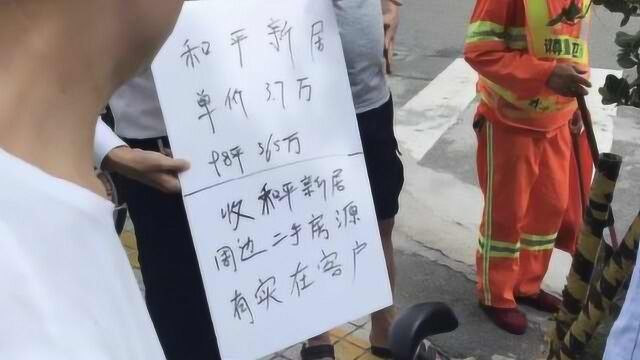 和平新居
单价3.7万
98平 365万
收和平新居
周边二手房源
有实在客户